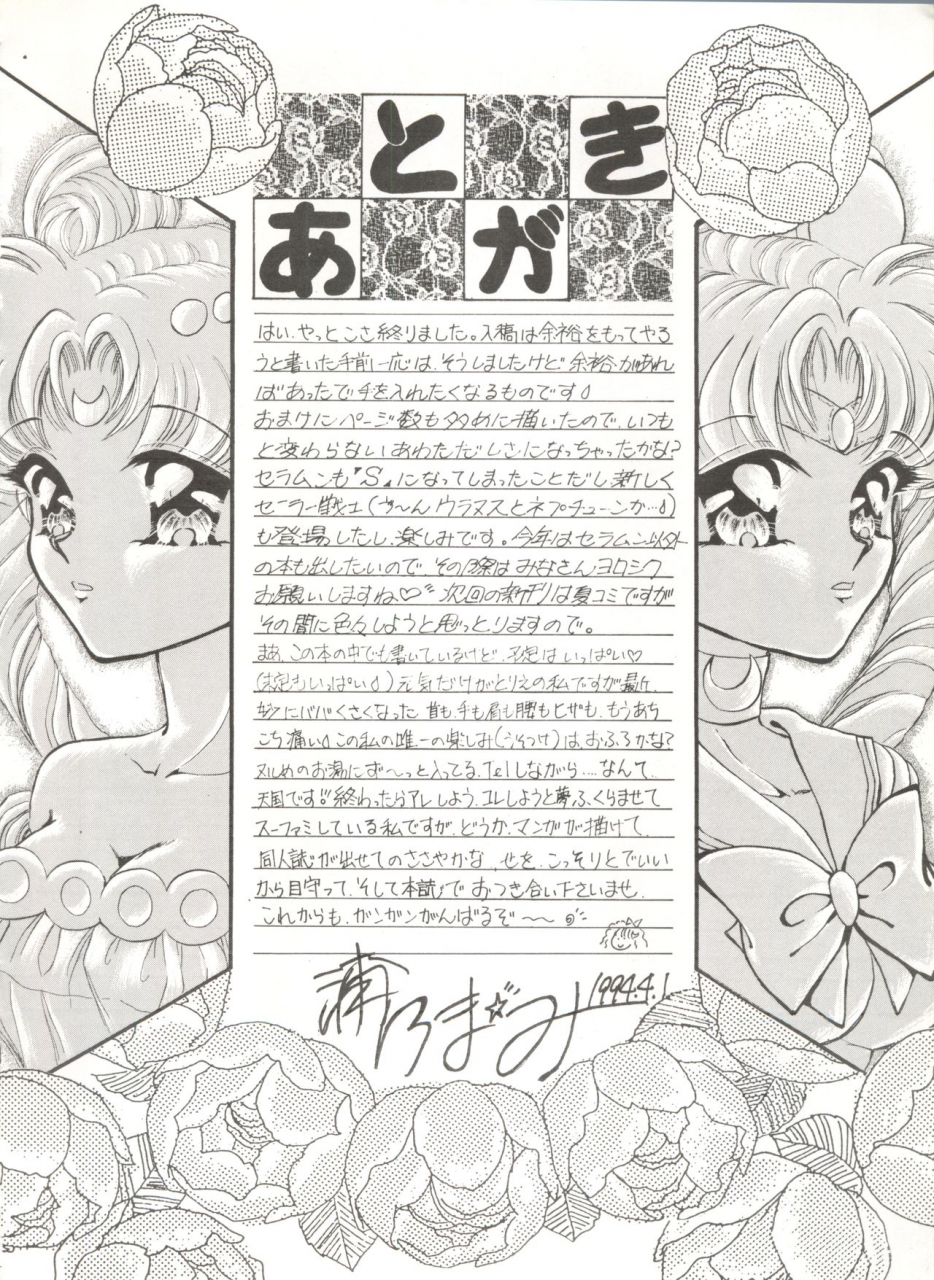 あとがき
はい、やっとこさ終りました。入稿は余裕をもってやろ
うと書いた手前一応は、そうしましたけど余裕があれ
ばあったで手を入れたくなるものです♪
おまけにページ数も多めに描いたので、いつも
と変わらないあわただしさになっちゃったかな?
セラムンも"S"になってしまったことだし新しく
セーラー戦士(う〜んウラヌスとネプチューンか…♪)
も登場したし、楽しみです。今年はセラムン以外
の本も出したいので、その際はみなさんヨロシク
お願いしますね♡ 次回の新刊は夏コミですが
その間に色々しようと思っとりますので。
まあ、この本の中でも書いているけど、予定はいっぱい♡
(未定もいっぱい♪)元気だけがとりえの私ですが最近、
妙にババくさくなった 首も、手も肩も腰もヒザも、もうあち
こち痛い♪この私の唯一の楽しみ(うそつけ)は、おふろかな?
ヌルめのお湯にず〜っと入ってる、Telしながら....なんて
天国です!!終わったらアレしよう、コレしようと夢ふくらませて
スーファミしている私ですが、どうか、マンガが描けて、
同人誌が出せてのささやかな、せを、こっそりとでいい
から目守って、そして本誌でおつき合い下さいませ
これからも、ガンガンがんばるぞ〜〜
1994.4.1